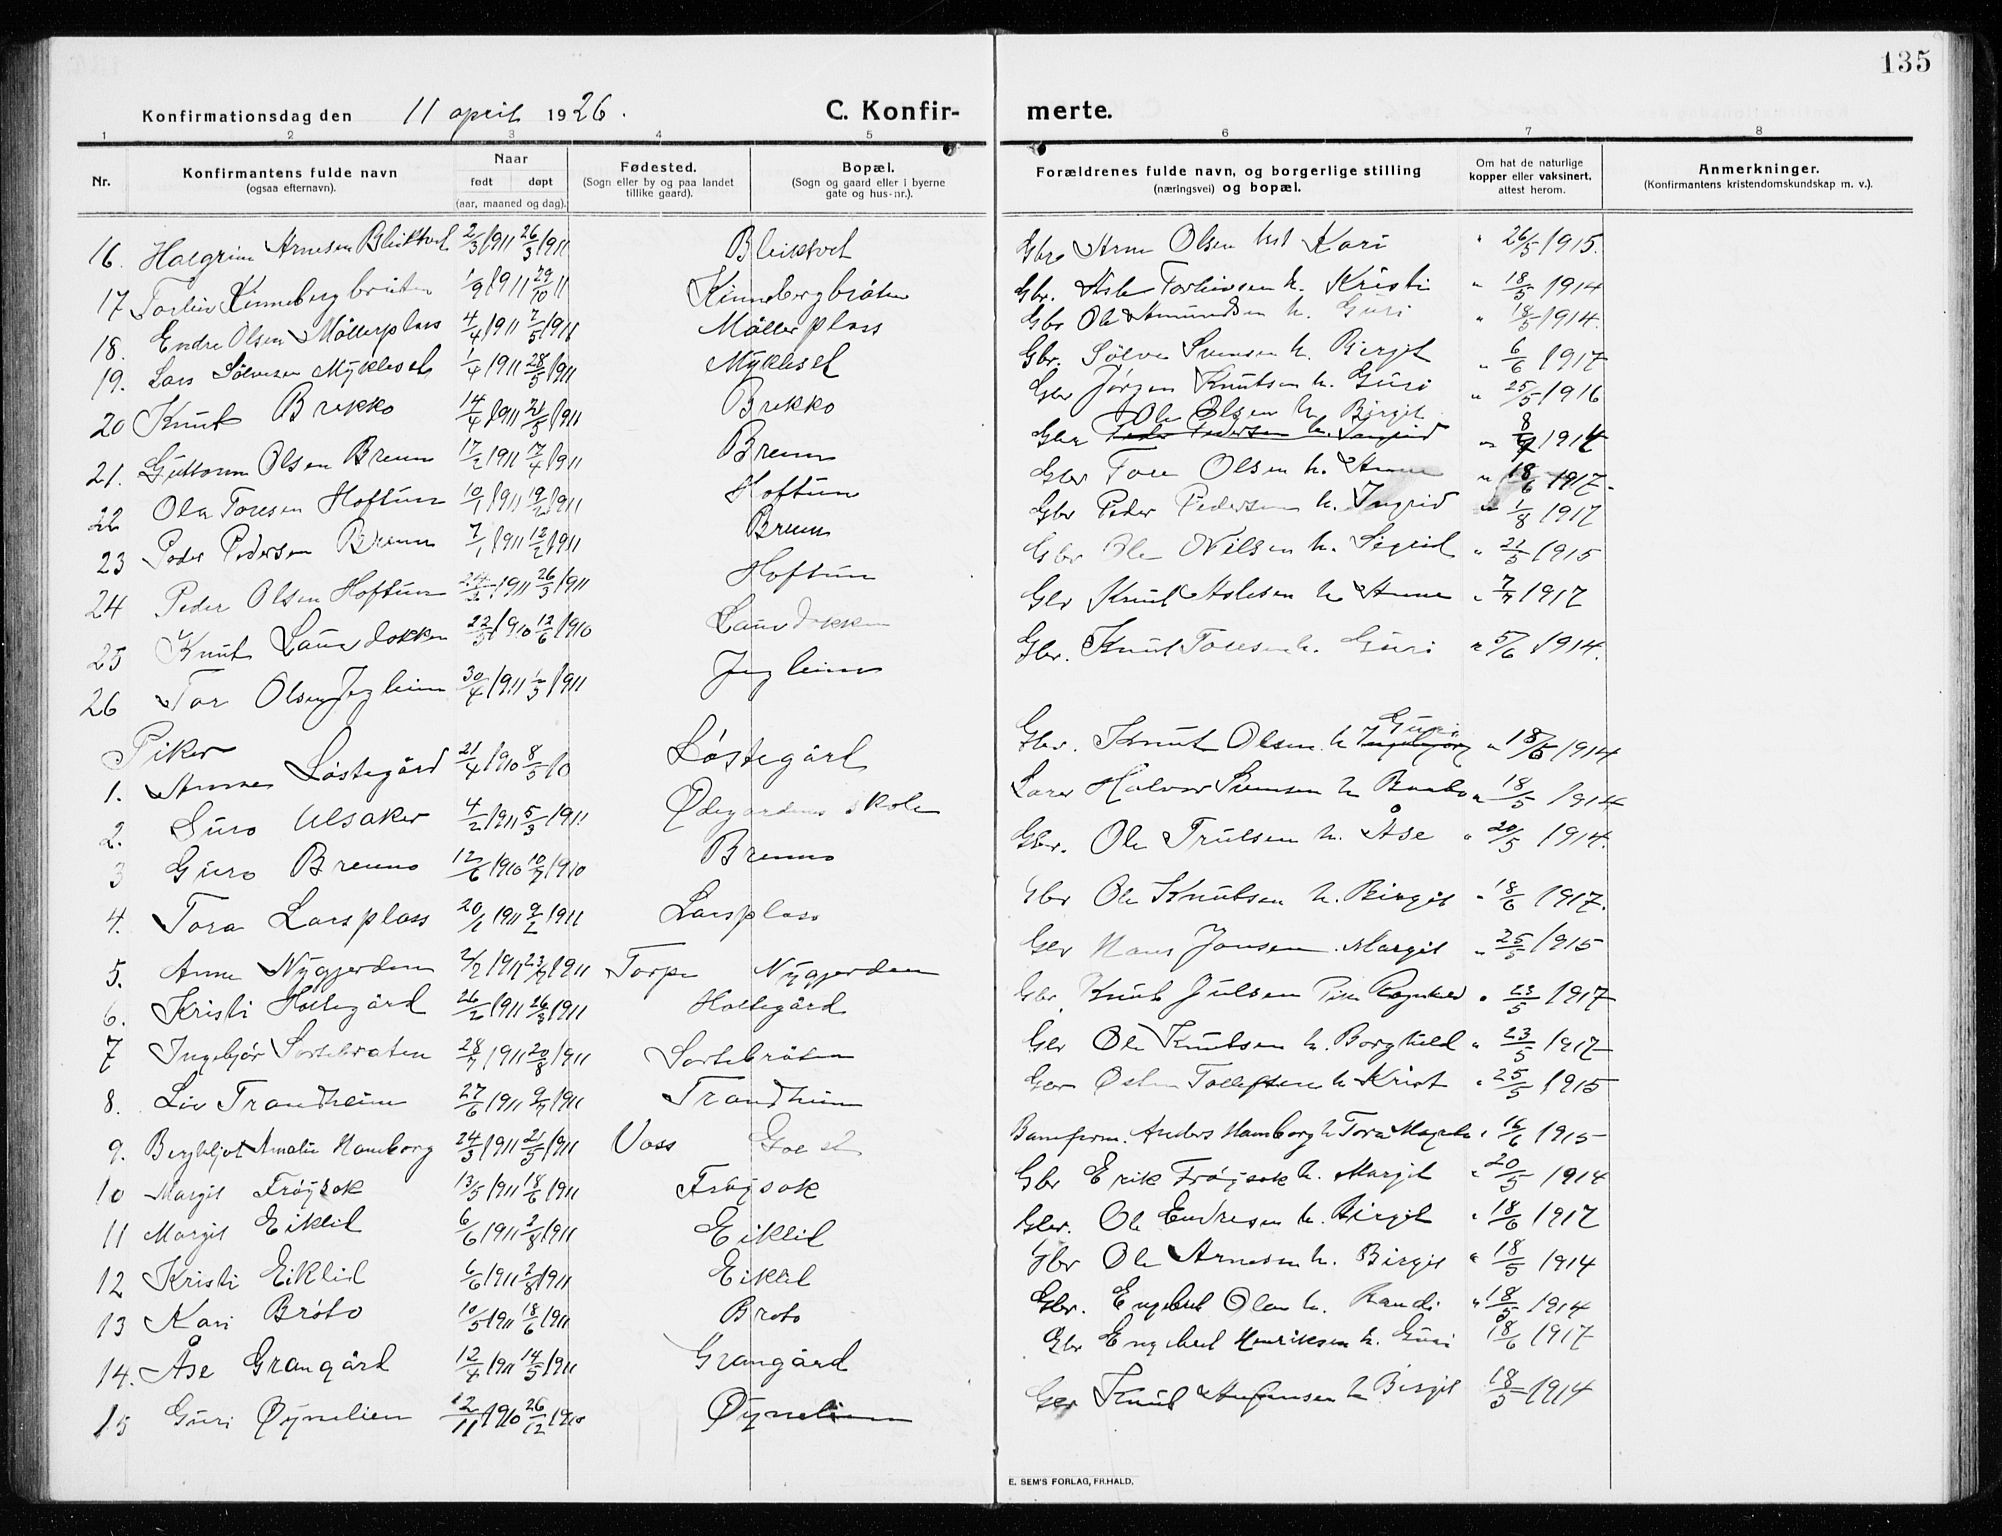 135
Konfirmationsdag den 11 april 1926.
C. Konfirmerte.
1 2 3 4 5 6 7 8
Nr.
Konfirmantens fulde navn (ogsaa efternavn).
Naar født døpt (aar, maaned og dag).
Fødested. (Sogn eller by og paa landet tillike gaard).
Bopæl. (Sogn og gaard eller i byerne gate og hus-nr.).
Forældrenes fulde navn, og borgerlige stilling (næringsvei) og bopæl.
Om hat de naturlige kopper eller vaksinert, attest herom.
Anmerkninger. (Konfirmantens kristendomskundskap m. v.).
16. Halgrim Arnesen Bleiktvet 2/3 1911 26/3 1911 Bleiktvet Gbr Arne Olsen Kari " 26/5 1915.
17 Torleiv Kinnebergbråten 1/9 1911 29/10 11 Kinnebergbråten Gbr. Asle Torleivsen h. Kristi " 18/5 1914
18. Endre Olsen Møllerplass 4/4 1911 7/5 1911 Møllerplass Gbr Ole Amundsen h. Guri " 18/5 1914.
19. Lars Sølvesen Mykleset 1/4 1911 28/5 1911 Mykleset Gbr. Sølve Svensen h. Birgit " 6/6 1917
20 Knut Brekko 14/4 1911 21/5 1911 Brekko Gbr Jørgen Knutsen h. Guri " 25/5 1916
21. Guttorm Olsen Brenn 17/2 1911 7/4 1911 Brenn Gbr Ole Olsen h. Birgit Peder Pedersen h. Ingrid " 1914
22 Ola Toresen Hoftun 10/1 1911 19/2 1911 Hoftun Gbr Tore Olsen h. Anne " 18/6 1917
23 Peder Pedersen Brenn 7/1 1911 12/2 1911 Brenn Gbr Peder Pedersen h. Ingrid " 1/8 1917
24 Peder Olsen Hoftun 1911 26/3 1911 Hoftun Gbr Ole Nilsen h. Sigrid " 21/5 1915
25 Knut Laurdokken 22/5 1910 12/6 1910 Laurdokken Gbr Knut Aslesen h Anne " 7/7 1917
26 Tor Olsen Jegleim 30/4 1911 1911 Jegleim Gbr. Knut Toresen h. Guri " 5/6 1914.
Piker
1. Anne Løstegård 21/4 1910 8/5 10 Løstegård Gbr. Knut Olsen h Guri Ingebjørg " 18/5 1914
2. Guro Ulsaker 4/2 1911 5/3 1911 Ødegardens skole Lærer Halvor Svensen h " 18/5 1914
3 Guro Brenno 12/6 1910 10/7 1910 Brenno Gbr. Ole Trulsen h. Åse " 20/5 1914.
4. Tora Larsplass 20/1 1911 9/2 1911 Larsplass Gbr Ole Knutsen h. Birgit " 18/6 1917.
5. Anne Nygjerden 2/2 1911 23/7 1911 Torpe Nygjerden Gbr Hans Jonsen Margit " 25/5 1915
6. Kristi Holtegård 26/2 1911 26/3 1911 Holtegård Gbr Knut Julsen Ragnhild " 23/5 1917
7 Ingebjør Sortebråten 28/7 1911 20/8 1911 Sortebråten Gbr Ole Knutsen h. Borghild " 23/5 1917
8. Liv Trondheim 27/6 1911 9/7 1911 Trondheim Gbr Østen Tollefsen h Krist " 25/5 1915
9. Bergljot Amalie Hamborg 24/3 1911 21/5 1911 Voss Gol st Baneform. Anders Hamborg h Tora " 16/6 1915
10 Margit Frøysok 13/5 1911 18/6 1911 Frøysok Gbr Erik Frøysok h. Margit " 20/5 1914
11 Margit Eiklid 6/6 1911 2/8 1911 Eiklid Gbr. Ole Endresen h. Birgit " 18/6 1917
12 Kristi Eiklid 6/6 1911 2/8 1911 Eiklid Gbr Ole Arnesen h. Birgit " 18/5 1914
13 Kari Brøto 10/5 1911 18/6 1911 Broto Gbr. Engebret Olsen h. Randi " 18/5 1914
14. Åse Grangård 12/4 1911 14/5 1911 Grangård Gbr Engebret Henriksen h. Guri 18/6 1917
15 Guri Øynelien 12/11 1910 26/12 1910 Øynelien Gbr Knut h Birgit 18/5 1914
E. SEM'S FORLAG, FR.HALD.